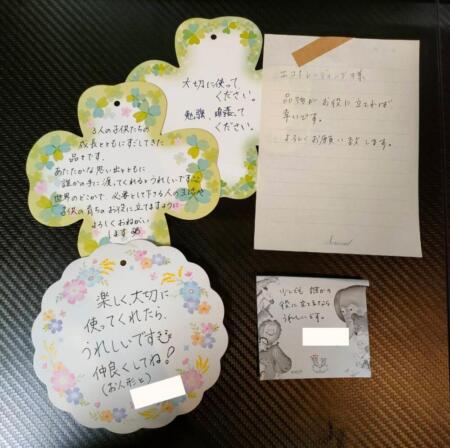 大切に使って
ください。
勉強、頑張って
ください
3人の子供たちの
成長とともにすごしてきた
品々です。
あたたかな思い出とともに
誰かの手に渡ってくれるとうれしいです
世界のどこかで、必要として下さる人の
子供の育ちのお役に立てますように
よろしくおねがい
します
エコトレーディング様
品物がお役に立てれば
幸いです。
よろしくお願い致します。
楽しく、大切に
使ってくれたら、
うれしいです
仲良くしてね!
(お人形と)
少しでも誰かの
役に立てるなら
うれしいです。